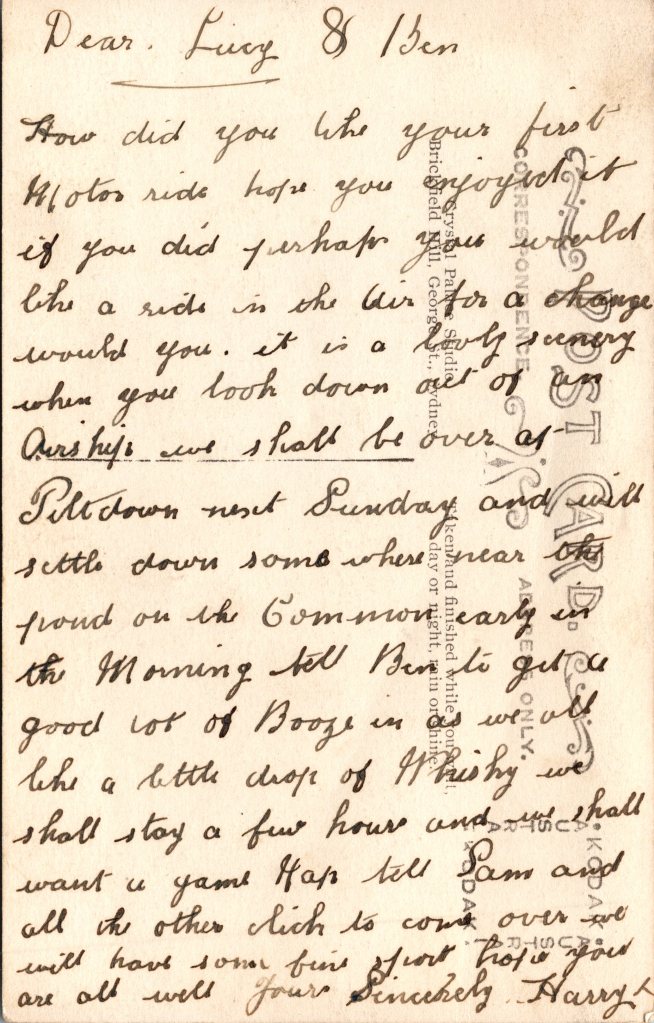 Dear. Lucy & Ben
How did you like your first
Motor ride hope you enjoyed it
if you did perhaps you would
like a ride in the Air for a change
would you. it is a lovly scenery
when you look down out of an
Airship we shall be over at
Piltdown next Sunday and will
settle down some where near the
pond on the Common early in
the Morning tell Ben to get a
good lot of Booze in as we all
like a little drop of Whisky we
shall stay a few hours and we shall
want a game Nap tell Sam and
all the other click to come over we
will have some fine sport hope you
are all well Yours Sincerely Harry
POST CARD.
CORRESPONDENCE
ADDRESS ONLY.
Crystal Palace Studio,
Brickfield Hill, George St., Sydney
Taken and finished while you wait,
day or night, rain or shine.
KODAK
AUSTRAL
KODAK